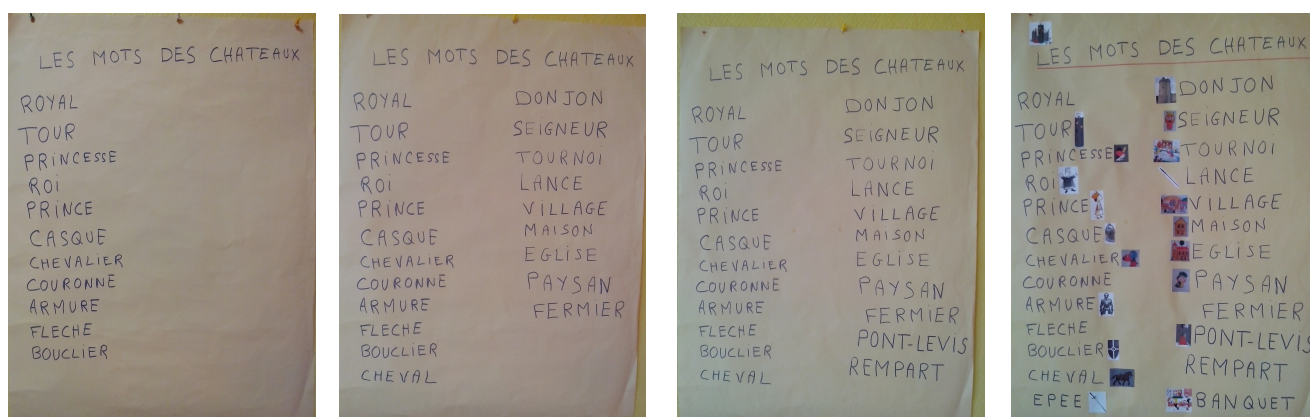 LES MOTS DES CHATEAUX
ROYAL
TOUR
PRINCESSE
ROI
PRINCE
CASQUE
CHEVALIER
COURONNE
ARMURE
FLECHE
BOUCLIER
LES MOTS DES CHATEAUX
ROYAL
TOUR
PRINCESSE
ROI
PRINCE
CASQUE
CHEVALIER
COURONNE
ARMURE
FLECHE
BOUCLIER
CHEVAL
DONJON
SEIGNEUR
TOURNOI
LANCE
VILLAGE
MAISON
EGLISE
PAYSAN
FERMIER
LES MOTS DES CHATEAUX
ROYAL
TOUR
PRINCESSE
ROI
PRINCE
CASQUE
CHEVALIER
COURONNE
ARMURE
FLECHE
BOUCLIER
CHEVAL
DONJON
SEIGNEUR
TOURNOI
LANCE
VILLAGE
MAISON
EGLISE
PAYSAN
FERMIER
PONT-LEVIS
REMPART
LES MOTS DES CHATEAUX
ROYAL
TOUR
PRINCESSE
ROI
PRINCE
CASQUE
CHEVALIER
COURONNE
ARMURE
FLECHE
BOUCLIER
CHEVAL
EPEE
DONJON
SEIGNEUR
TOURNOI
LANCE
VILLAGE
MAISON
EGLISE
PAYSAN
FERMIER
PONT-LEVIS
REMPART
BANQUET